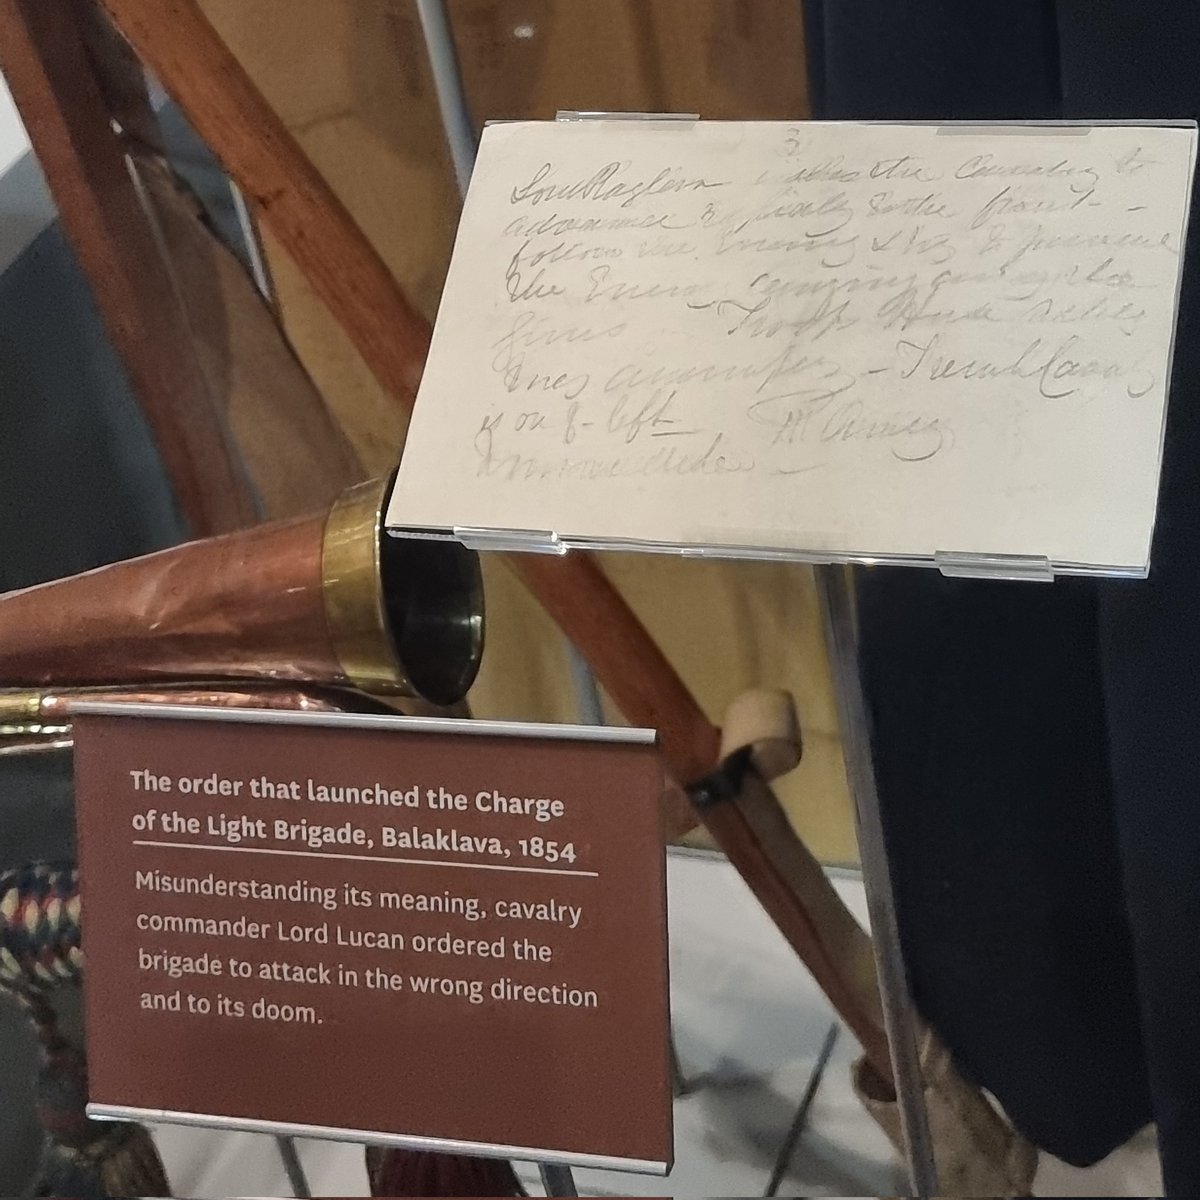 3
Lord Raglan wishes the Cavalry to
advance rapidly to the front -
follow the Enemy & try to prevent
the Enemy carrying away the
guns Troop Horse Artillery
may accompany - French Cavalry
is on yr left
R Airey
Immediate
The order that launched the Charge
of the Light Brigade, Balaklava, 1854
Misunderstanding its meaning, cavalry
commander Lord Lucan ordered the
brigade to attack in the wrong direction
and to its doom.